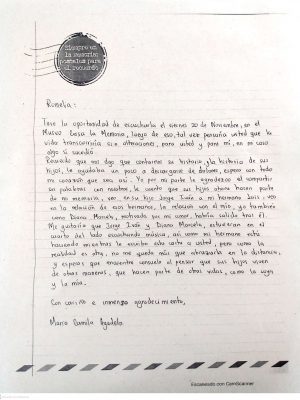 Siempre en
la memoria:
postales para
el recuerdo
Rumelia:
Tuve la oportunidad de escucharla el viernes 20 de Noviembre, en el
Museo Casa la Memoria, luego de eso, tal vez pensaría usted que la
vida transcurriría sin alteraciones, para usted y para mí, en mi caso
algo si sucedió
Recuerdo que nos dijo que contarnos su historia, la historia de sus
hijos, le ayudaba un poco a descargarse de dolores, espero con todo
mi corazón que sea así. Yo por mi parte le agradezco el compartir
su palabras con nosotros, le cuento que sus hijos ahora hacen parte
de mi memoria, ver en su hijo Jorge Iván a mi hermano Luis, ver
en la relación de esos hermanos, la relación con el mío, yo también
como Diana Marcela, motivada por mi amor, habría salido tras él.
Me gustaría que Jorge Iván y Diana Marcela, estuvieran en el
cuarto del lado escuchando música, así como mi hermano está
haciendo mientras le escribo esta carta a usted, pero como la
realidad es otra, no me queda más que abrazarla en la distancia,
y esperar que encuentre consuelo al pensar que sus hijos viven
de otras maneras, que hacen parte de otras vidas, como la suya
y la mía.
Con cariño e inmenso agradecimiento,
Maria Camila Agudelo
Escaneado con CamScanner